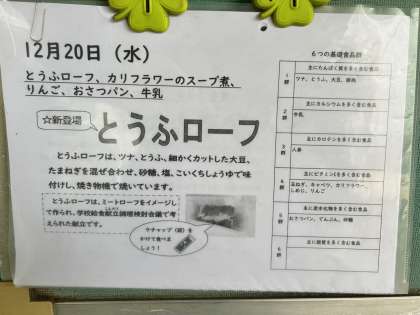 12月20日（水）
とうふローフ、カリフラワーのスープ煮、
りんご、おさつパン、牛乳
☆新登場
とうふローフ
とうふローフは、ツナ、とうふ、細かくカットした大豆、
たまねぎを混ぜ合わせ、砂糖、塩、こいくちしょうゆで味
付けし、焼き物機で焼いています。
とうふローフは、ミートローフをイメージし
て作られ、学校給食献立調理検討会議で考
えられた献立です。
ケチャップ（袋）を
かけて食べま
しょう！
６つの基礎食品群
主にたんぱく質を多く含む食品
1群
ツナ、とうふ、大豆、豚肉
主にカルシウムを多く含む食品
2群
牛乳
主にカロテンを多く含む食品
3群
人参
主にビタミンCを多く含む食品
4群
玉ねぎ、キャベツ、カリフラワー、
しめじ、りんご
主に炭水化物を多く含む食品
5群
おさつパン、でんぷん、砂糖
主に脂質を多く含む食品
6群